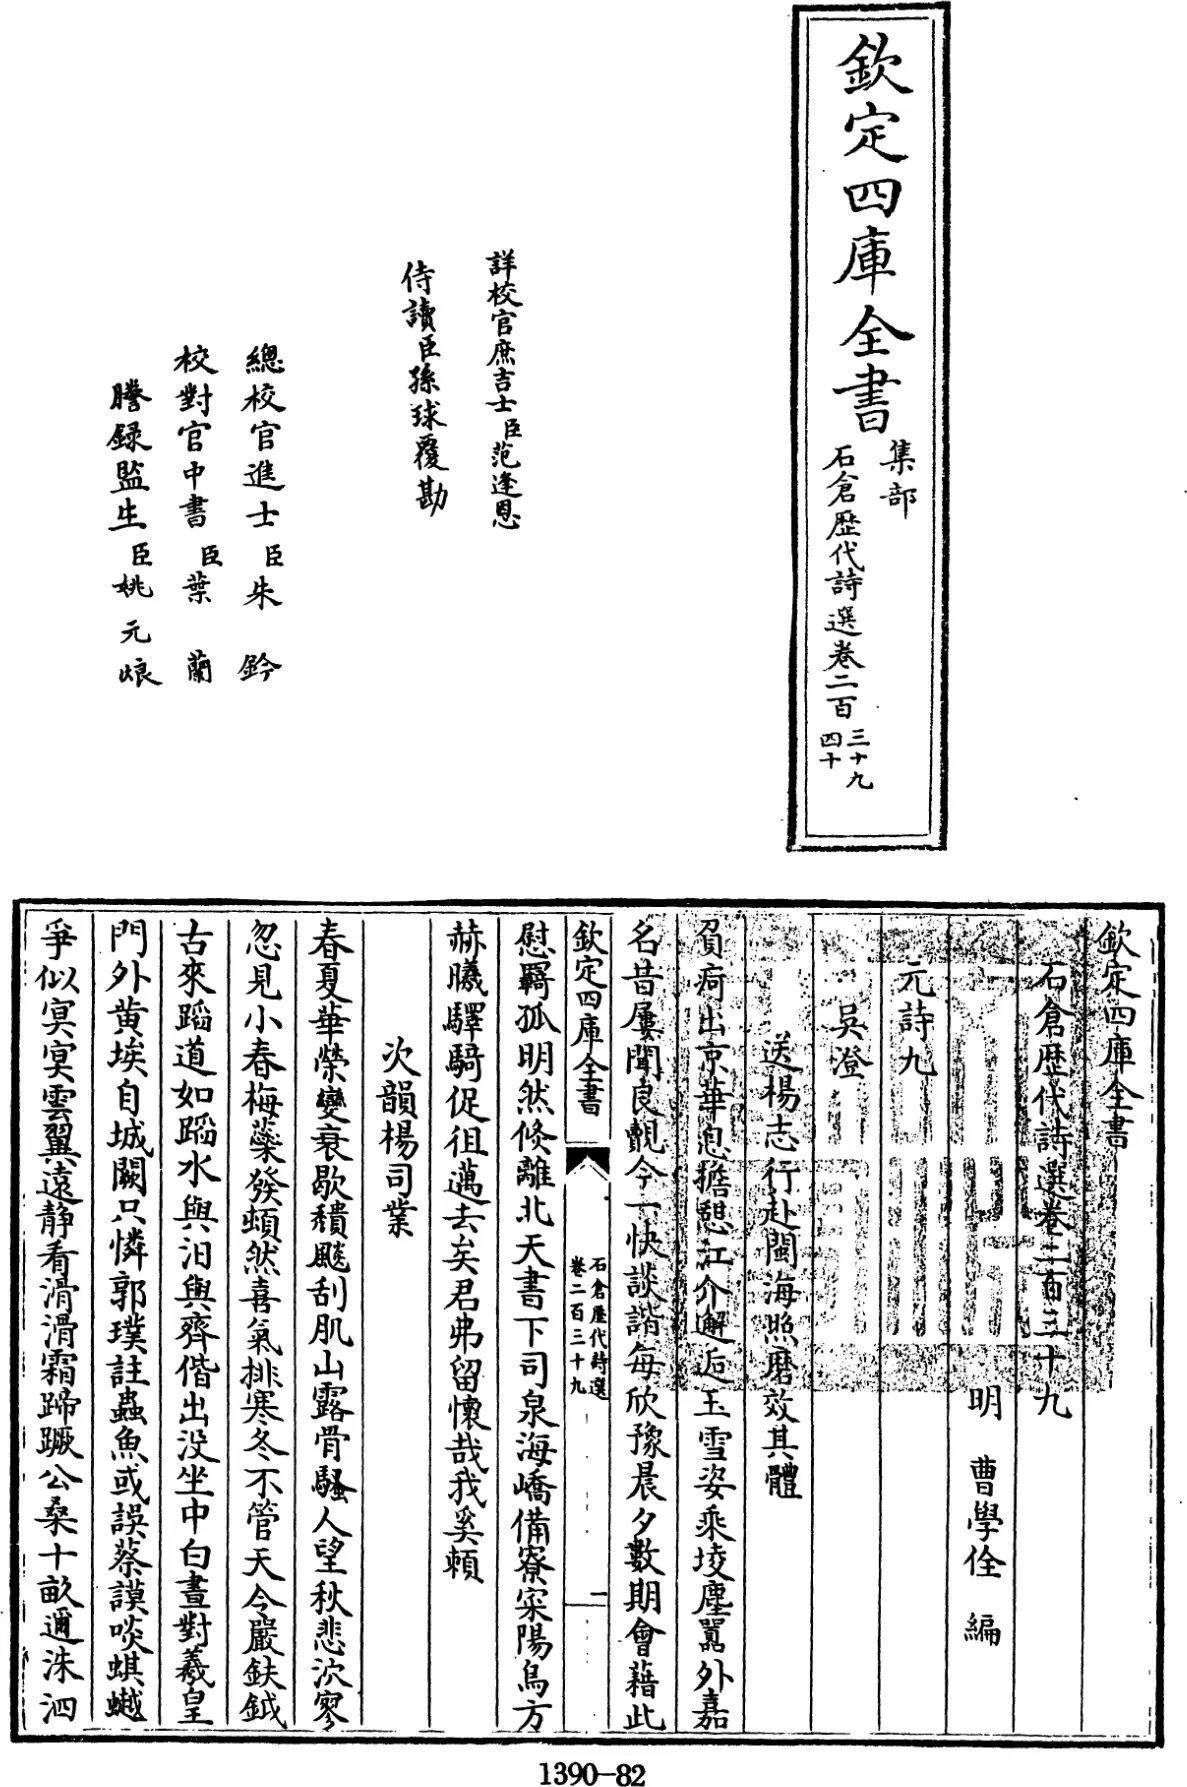 欽定四庫全書
集部
石倉歷代詩選卷二百
三十九
四十
詳校官庶吉士臣范逢恩
侍讀臣孫球覆勘
總校官進士臣朱鈐
校對官中書臣葉蘭
謄録監生臣姚元烺
欽定四庫全書
石倉歷代詩選卷二百三十九
明 曹學佺 編
元詩九
吳澄
送楊志行赴閩海照磨效其體
負疴出京華息擔憩江介邂逅玉雪姿乘堎塵嚣外嘉
名昔屢聞良覿今一快談諧每欣豫晨夕數期會藉此
欽定四庫全書
石倉歷代詩選
卷二百三十九
一
慰羇孤明然倏離北天書下司泉海嶠備寮寀陽烏方
赫曦驛騎促徂邁去矣君弗留懷哉我奚頼
次韻楊司業
春夏華榮變衰歇穨飈刮肌山露骨騷人望秋悲泬寥
忽見小春梅蘂發頓然喜氣排寒冬不管天令嚴鈇鉞
古來蹈道如蹈水與汨與齊偕出没坐中白晝對羲皇
門外黄埃自城闕只憐郭璞註蟲魚或誤蔡謨啖蜞蟚
爭似㝠㝠雲翼遠静看滑滑霜蹄蹶公桑十畝邇洙泗
1390-82